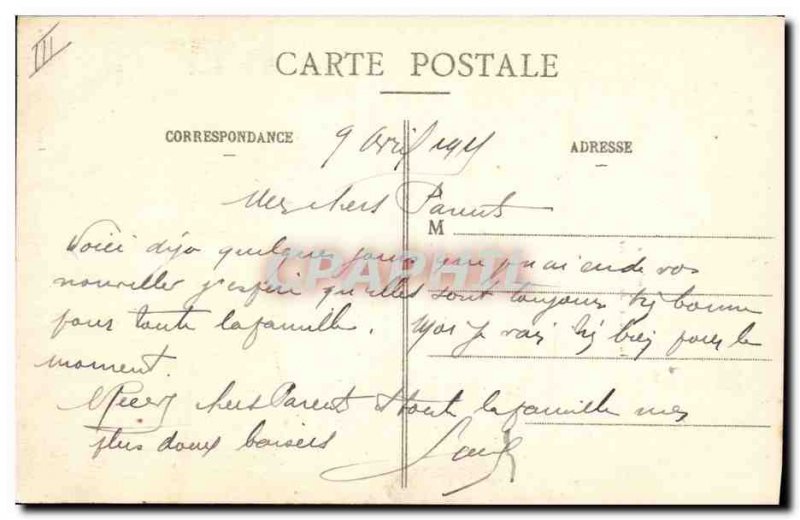 III
CARTE POSTALE
CORRESPONDANCE
ADRESSE
9 Avril 1915
Mes chers Parents
M
Voici déja quelque jours que je n'ai eu de vos
nouvelles j'espère qu'elles sont toujours très bonne
pour toute la famille. Moi je vais très bien pour le
moment.
Recevez chers Parents et toute la famille mes
plus doux baisers
CPAPHIL